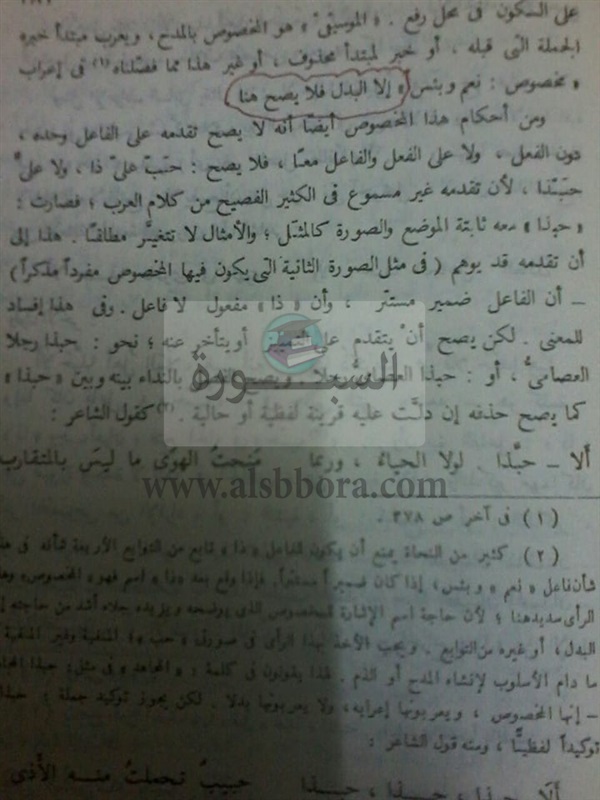 على السكون فى محل رفع . « الموسيقى » هو المخصوص بالمدح ، ويعرب مبتدأ خبره
الجملة التى قبله ، أو خبر لمبتدأ محذوف ، أو غير هذا مما فصلناه (١) فى إعراب
« مخصوص : نعم وبئس » إلا البدل فلا يصح هنا
ومن أحكام هذا المخصوص أيضًا أنه لا يصح تقدمه على الفاعل وحده ،
دون الفعل ، ولا على الفعل والفاعل معًا ، فلا يصح : حَبّ علىّ ذا ، ولا علىّ
حبّذا ، لأن تقدمه غير مسموع فى الكثير الفصيح من كلام العرب ؛ فصارت :
« حبذا » معه ثابتة الموضع والصورة كالمثل ؛ والأمثال لا تتغير مطلقًا . هذا إلى
أن تقدمه قد يوهم ( فى مثل الصورة الثانية التى يكون فيها المخصوص مفردًا مذكرًا )
ـ أن الفاعل ضمير مستتر ، وأن « ذا » مفعول لا فاعل . وفى هذا إفساد
للمعنى . لكن يصح أنْ يتقدم على التمييز أو يتأخر عنه ؛ نحو : حبذا رجلا
العصامىُّ ، أو : حبذا العصامىُّ رجلا . ويصح بالنداء بينه وبين « حبذا »
كما يصح حذفه إن دلت عليه قرينة لفظية أو حالية . (٢) كقول الشاعر :
ألا ـ حبّذا . لولا الحياءُ ، وربما مَنحتُ الهوَى ما ليسَ بالمتقارب
السبورة
www.alsbbora.com
( ١ ) فى آخر ص ٣٧٨ .
( ٢ ) كثير من النحاة يمنع أن يكون للفاعل « ذا » تابع من التوابع الأربعة شأنه فى
شأن فاعل « نعم » و « بئس » إذا كان ضميراً مستتراً . فإذا وقع بعد « ذا » اسم فهو « المخصوص »
الرأى سديد هنا ؛ لأن حاجة اسم الإشارة للمخصوص الذى يوضحه ويزيده جلاء أشد من حاجته إلى
البدل ، أو غيره من التوابع . ويجب الأخذ بهذا الرأى فى صورتى « حب » ؛ المنفية وغير المنفية
ما دام الأسلوب لإنشاء المدح أو الذم . لهذا يقولون فى كلمة : « المجاهد » فى مثل : حبذا
ـ إنها المخصوص ، ويعربونها إعرابه ، ولا يعربونها بدلا . لكن يجوز توكيد جملة : حبذا
توكيداً لفظيًّا ، ومنه قول الشاعر :
ألا حبذا ، حبذا ، حبذا حبيبٌ تحملتُ منه الأذى